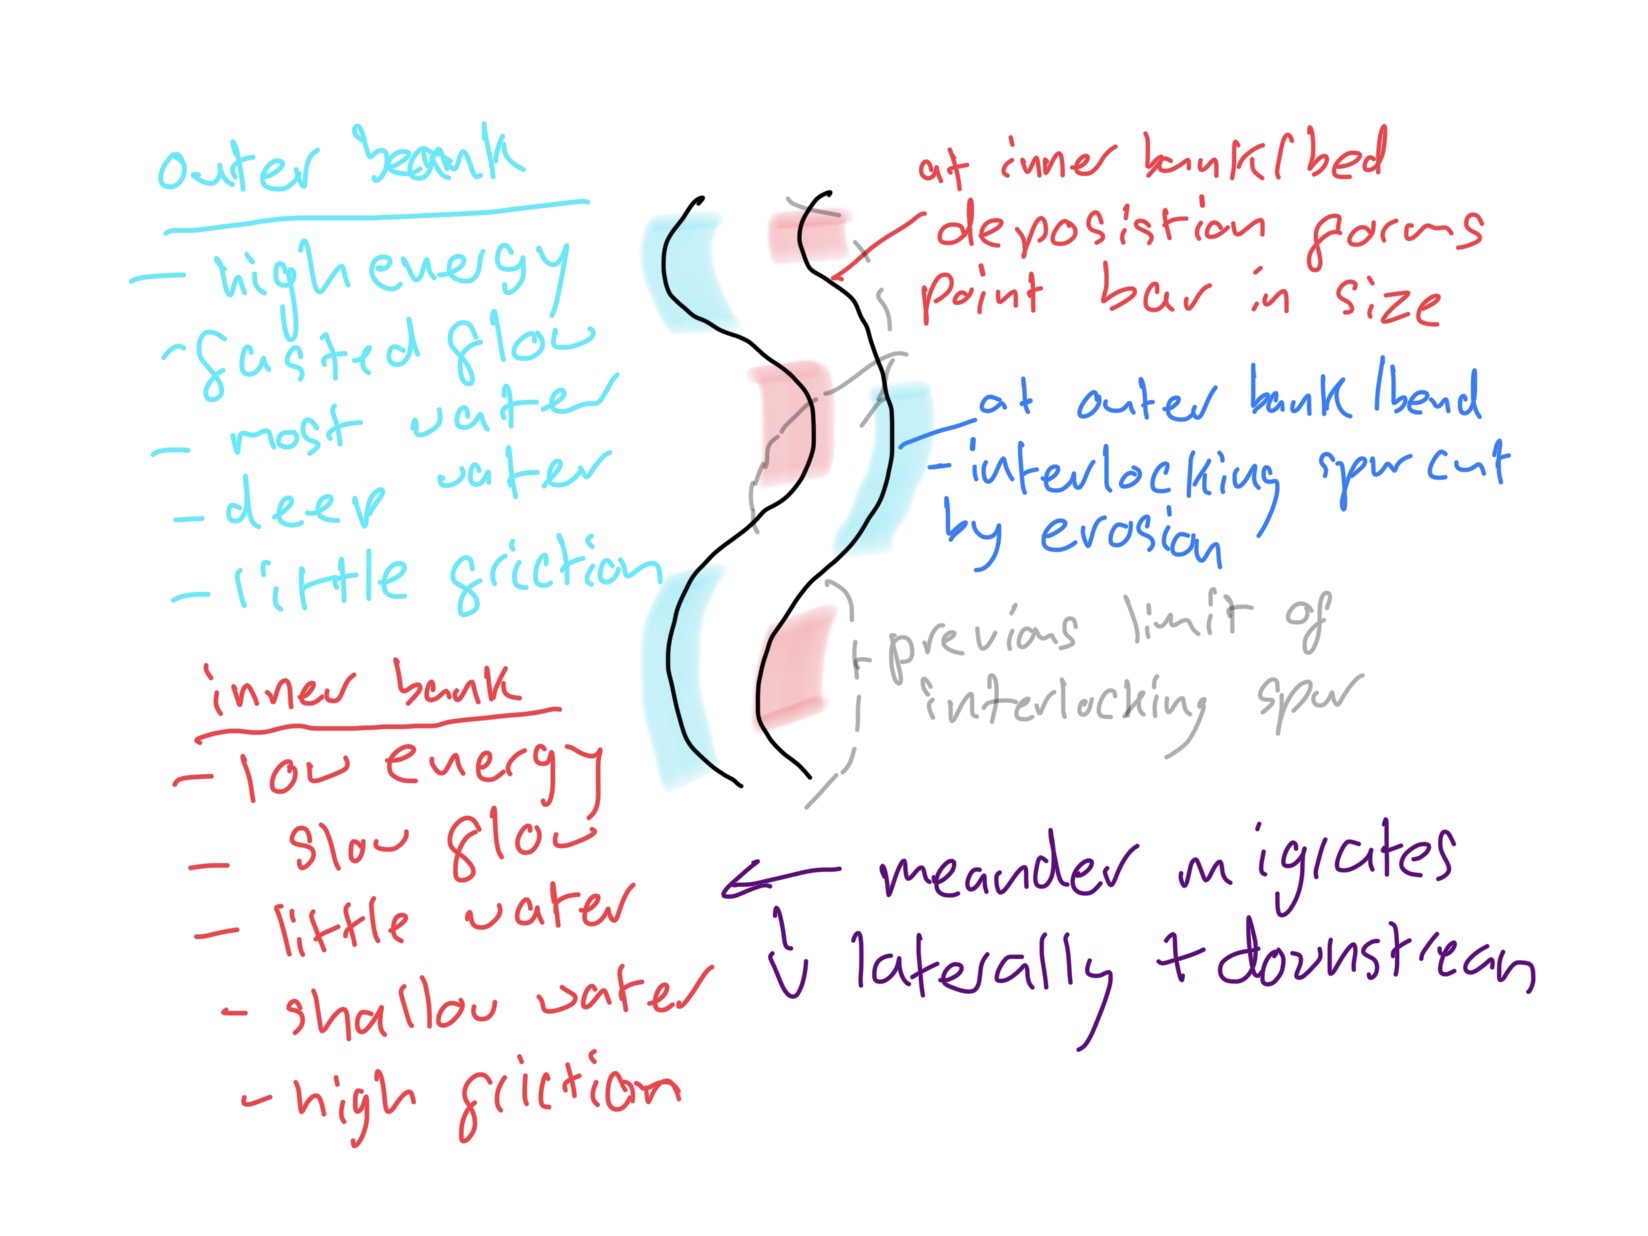 outer bank
- high energy
- fasted flow
- most water
- deep water
- little friction
inner bank
- low energy
- slow flow
- little water
- shallow water
- high friction
at inner bank/bed
deposistion forms
point bar in size
at outer bank/bend
- interlocking spur cut
by erosion
previous limit of
interlocking spur
← meander migrates
↓ laterally + downstream